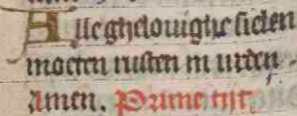 Alle ghelouighe sielen
moeten rusten in vreden
Amen. Prime tijt